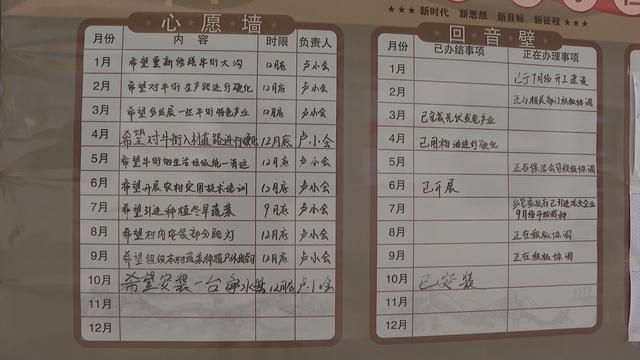 ★★★ 新时代 新思想 新目标 新征程 ★★★
心愿墙
月份 内容 时限 负责人
1月 希望重新修缮牛街大沟 12月底 卢小会
2月 希望对牛街生产路进行硬化 12月底 卢小会
3月 希望多发展一些牛街特色产业 12月底 卢小会
4月 希望对牛街入村道路进行硬化 12月底 卢小会
5月 希望牛街的生活垃圾统一清运 12月底 卢小会
6月 希望开展农村实用技术培训 12月底 卢小会
7月 希望引进种植冬早蔬菜 9月底 卢小会
8月 希望村内安装部分路灯 12月底 卢小会
9月 希望组织本村蔬菜种植户外出 12月底 卢小会
10月 希望安装一台净水器 12月底 卢小会
11月
12月
回音壁
月份 已办结事项 正在办理事项
1月 已于7月份开工建设
2月 正与相关部门积极协调
3月 已完成光伏发电产业
4月 已用柏油进行硬化
5月 正与保洁公司积极协调
6月 已开展
7月 企业 9月份开始
8月 正在积极协调
9月 正在积极协调
10月 已安装
11月
12月